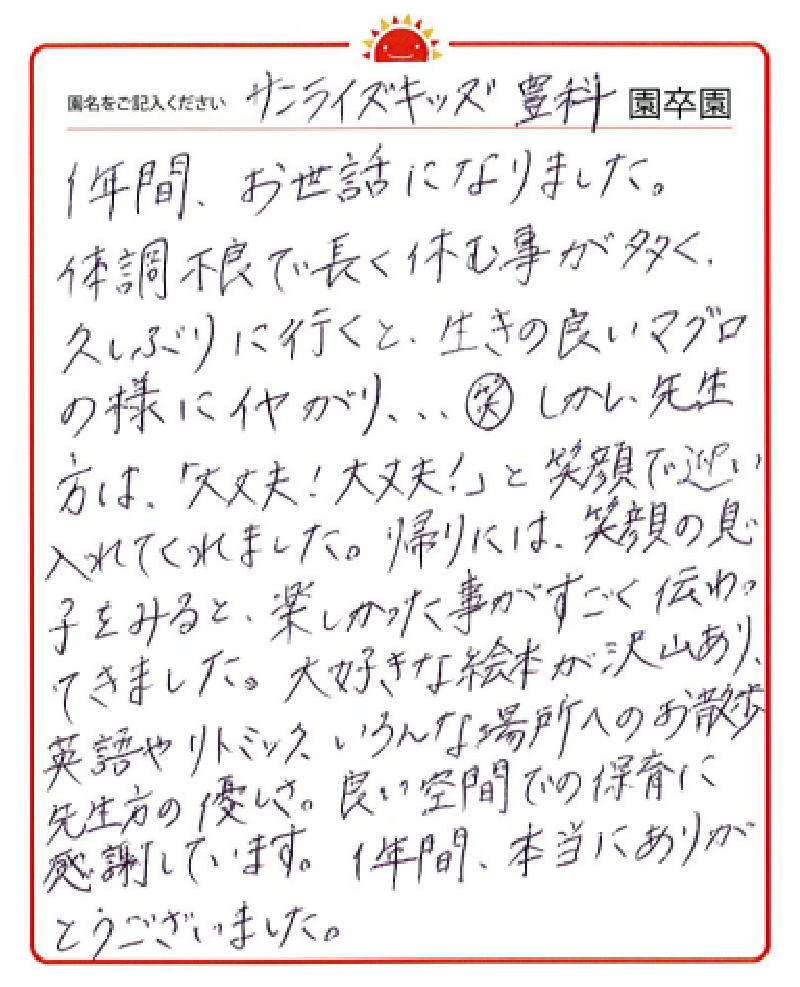 園名をご記入ください サンライズキッズ 豊科 園卒園
1年間、お世話になりました。
体調不良で長く休む事が多く、
久しぶりに行くと、生きの良いマグロ
の様にイヤがり、、、㊗笑 しかし、先生
方は、「大丈夫!大丈夫!」と笑顔で迎い
入れてくれました。帰りには、笑顔の息
子をみると、楽しかった事がすごく伝わっ
てきました。大好きな絵本が沢山あり、
英語やリトミック、いろんな場所へのお散歩
先生方の優しさ。良い空間での保育に
感謝しています。1年間、本当にありが
とうございました。